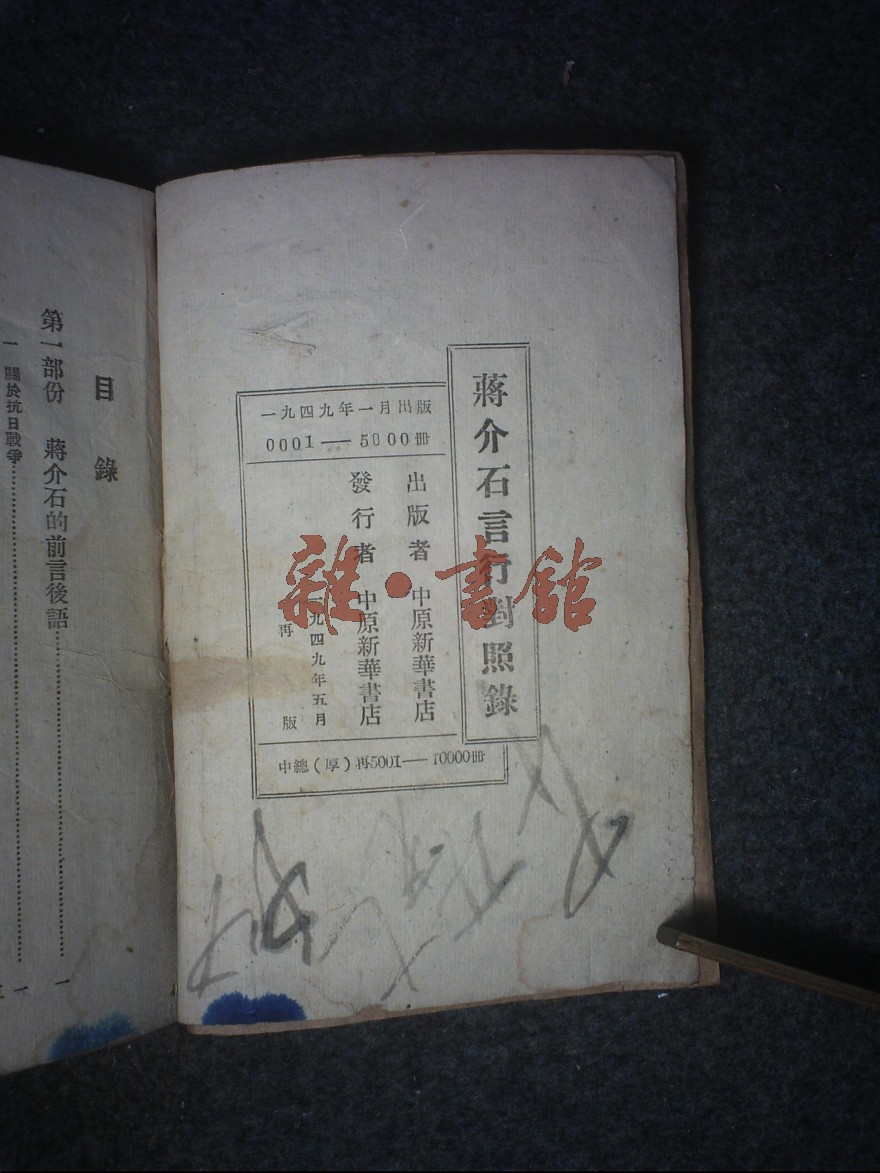 蔣介石言行對照錄
一九四九年一月出版
0001—5000冊
出版者 中原新華書店
發行者 中原新華書店
一九四九年五月
再版
中總(厚)再5001—10000冊
雜·書館
目錄
第一部份 蔣介石的前言後語……一
一 關於抗日戰爭……一